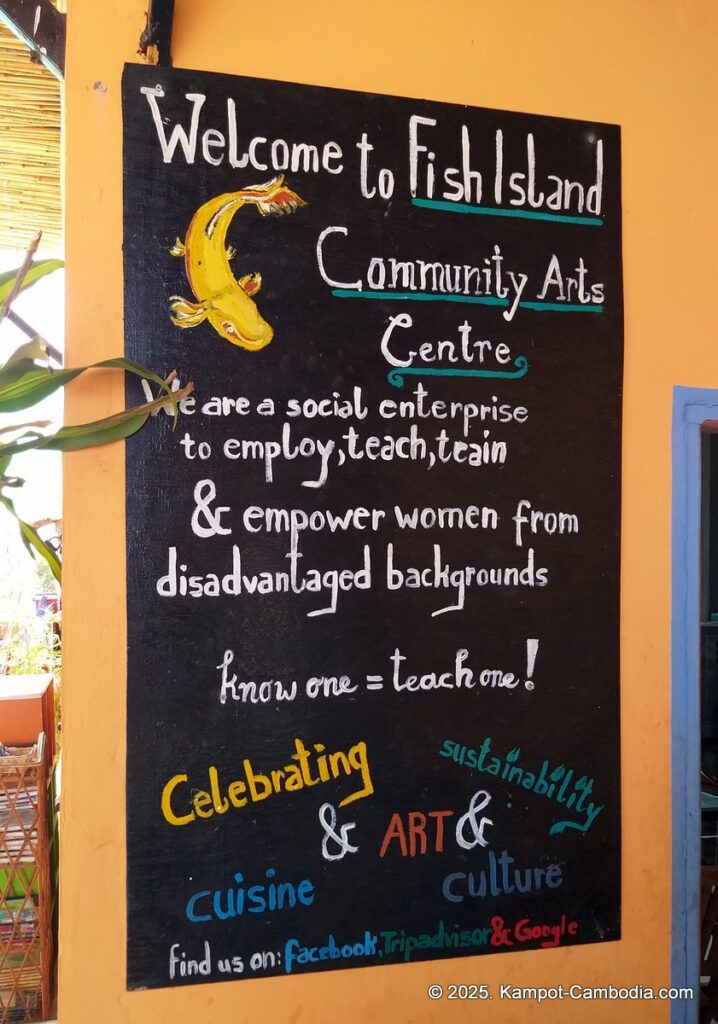 Welcome to Fish Island
Community Arts
Centre
We are a social enterprise
to employ, teach, train
& empower women from
disadvantaged backgrounds
know one = teach one!
Celebrating sustainability
& ART &
cuisine culture
find us on: facebook, Tripadvisor & Google
© 2025. Kampot-Cambodia.com